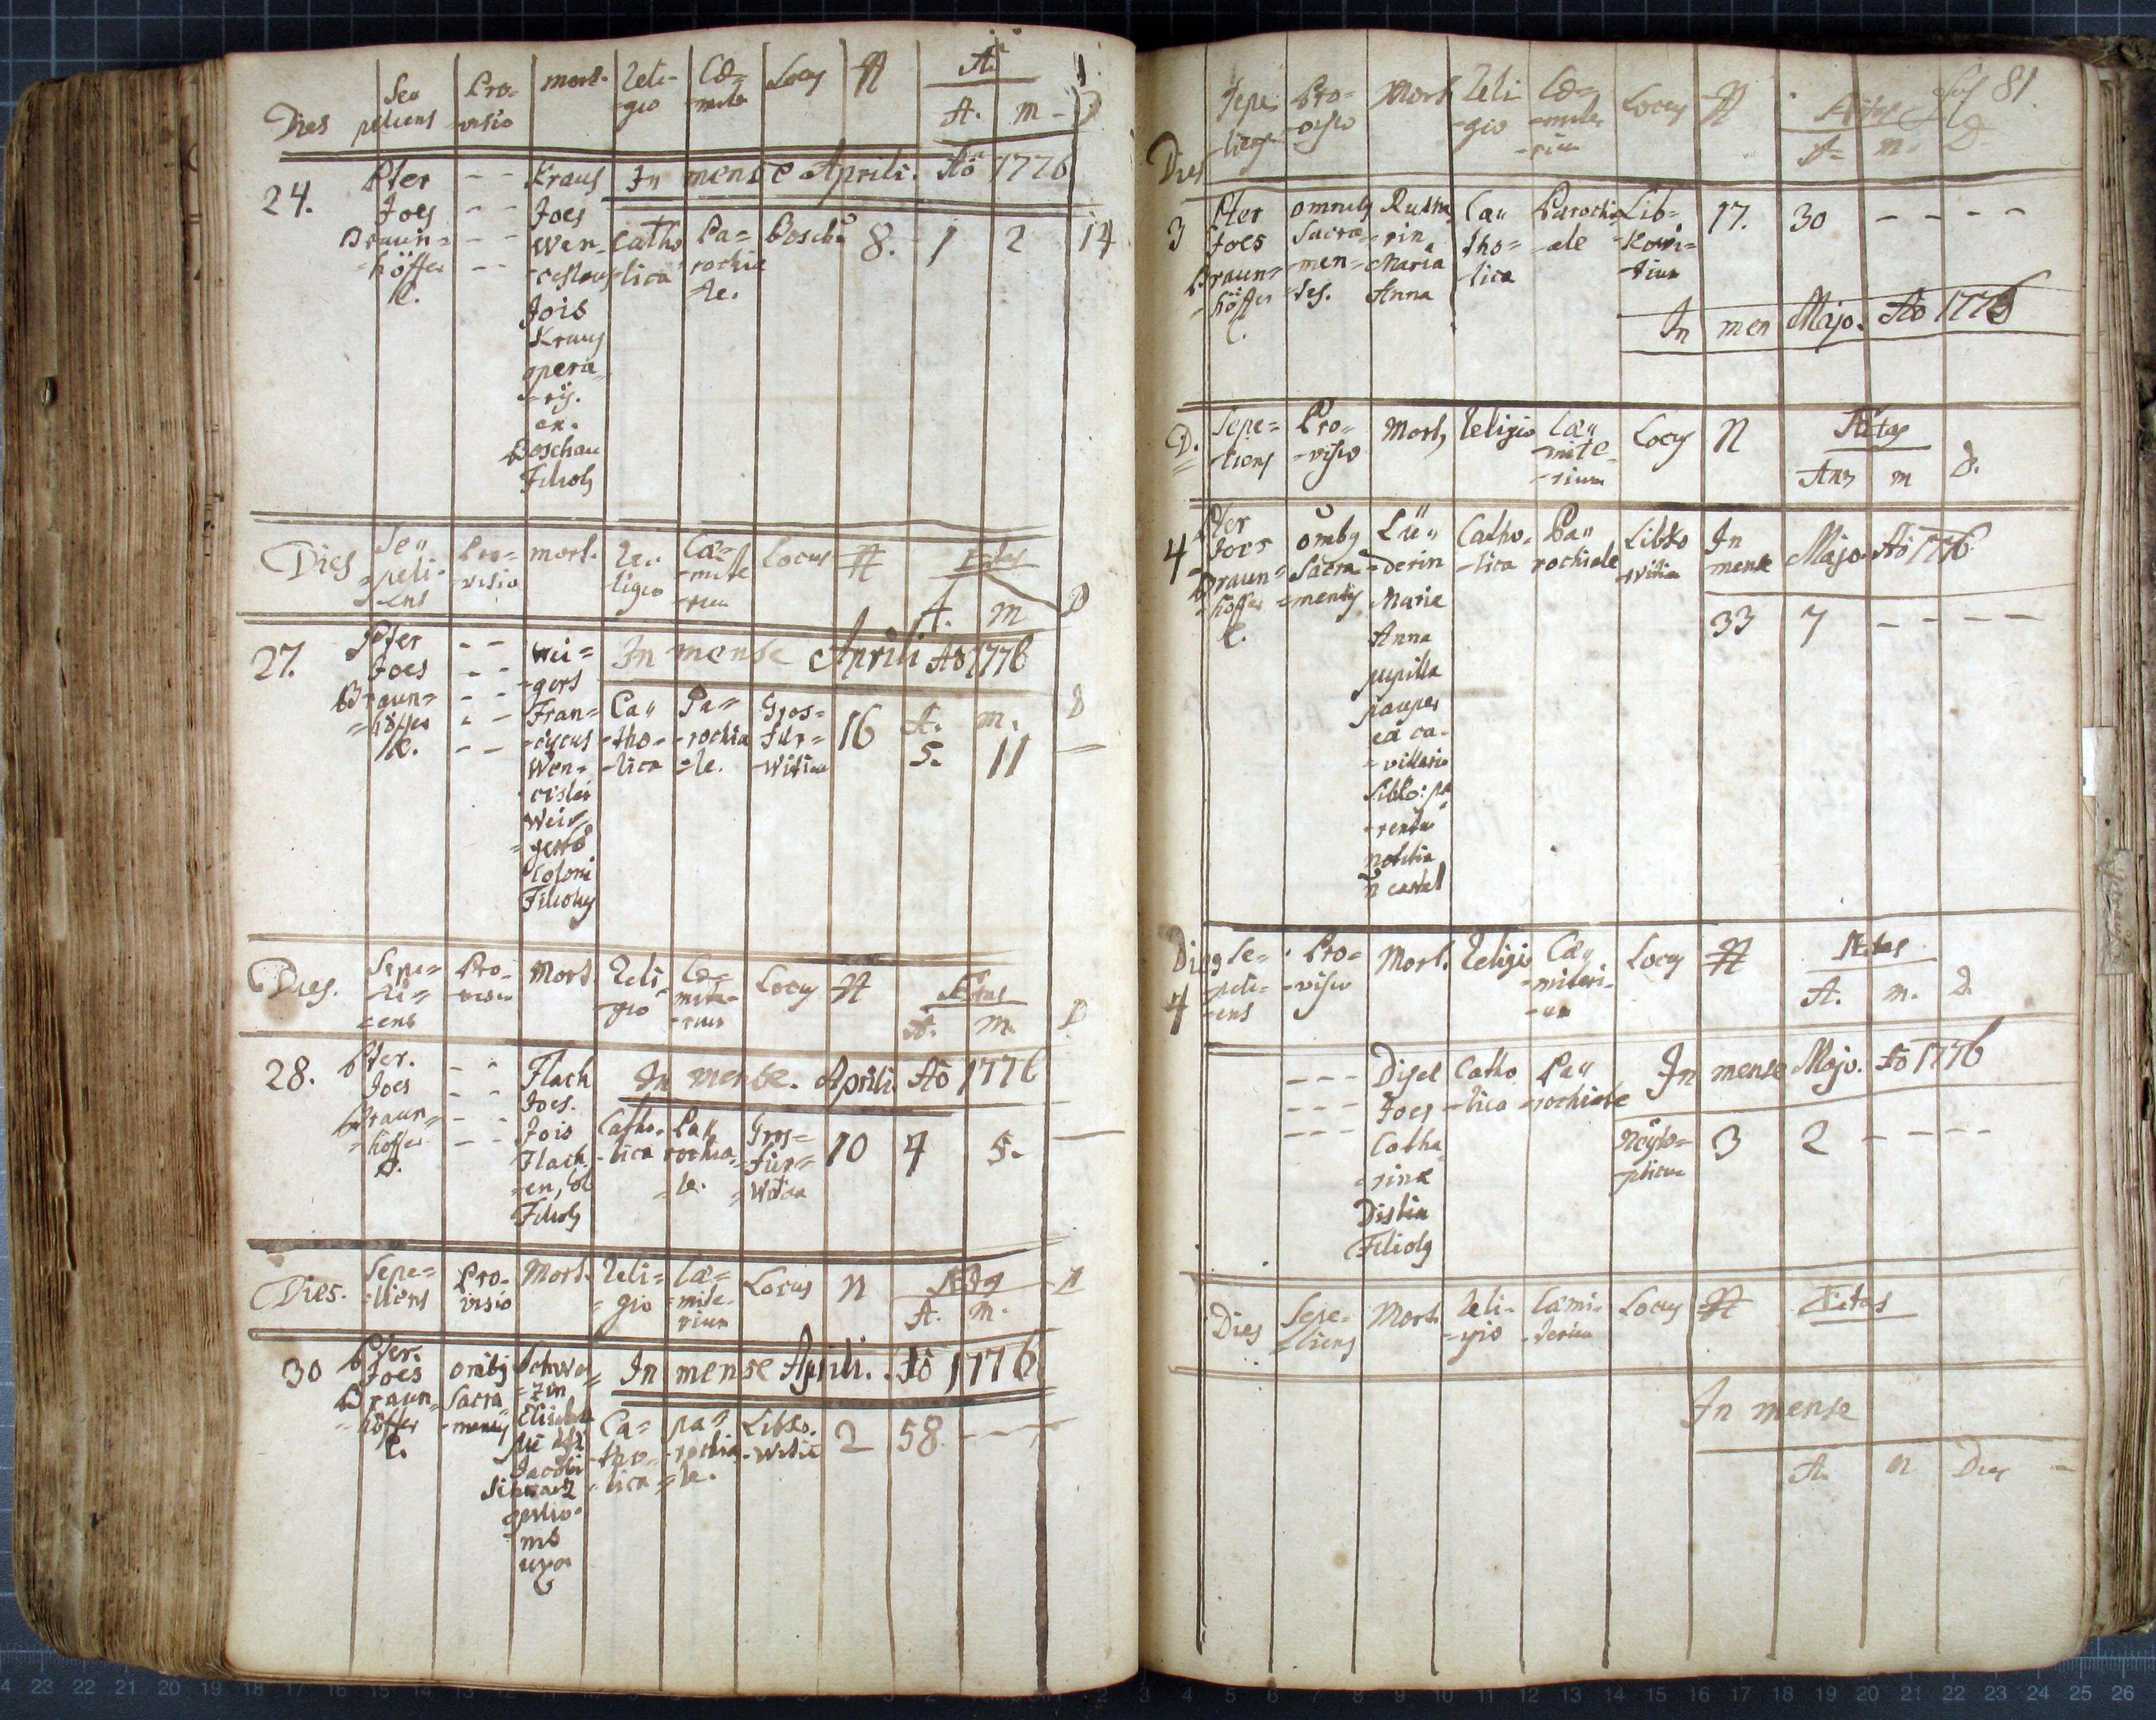 Dies Se= peliens Pro= visio mort. Reli= gio Cæ= mite Locus N A. m D
24. Pter Joes Braun= höffer C. — — Kraus Joes Wen= ceslaus Jois Kraus opera= rij. ex. Boschau Filiols
In mense Aprili. Aõ 1776
Catho lica Pa= rochia le. Boschu 8. 1 2 14
Dies Se,, peli= ens Pro= visio mort. Re,, ligio Cæ= mite rium Locus N Ætas A. m D
27. Pter Joes Braun= höffer C. — — Wei= gers Fran= ciscus Wen= cislai Wei= gerts Coloni Filiolus
In mense Aprili Aõ 1776
Ca,, tho= lica Pa= rochia le. Gros= für= Witium 16 A. 5. m. 11 D —
Dies. Sepe= li= ens Pro= visio Mort. Reli gio Cæ= mite= rium Locus N Ætas A. m. D
28. Pter. Joes Braun= höffer C. — — Flach Joes. Jois Flach en, Filiols
In mense. Aprili Aõ 1776
Catho= lica Pa,, rochia= le. Gros= für= Witia 10 4 5. —
Dies. Sepe= liens Pro= visio Mort. Reli= gio Cæ= mite= rium Locus N Ætas A. m. D
30 Pter. Joes Braun= höffer C. omibus Sacra mentis Schwa= zin, Jacobi Schwartz uxor
In mense Aprili. Aõ 1776
Ca= tho= lica pa= rochia le. Libko. Witiu 2 58 — — —
Fol 81.
Dies Sepe liens Pro= visio Mort Reli gio Cæ= mite= rium Locus N Ætas A. m. D.
3 Pter Joes Braun= höffer C. omnibus Sacra= men= tis. rin Maria Anna Ca,, tho= lica Parochi ale Lib= Kowi= tium 17. 30 — — — —
In men Majo. Aõ 1776
D. Sepe= liens Pro= visio Mort, Religio Cæ,, mite= rium Locus N Ætas An m D.
4 Pter Joes Braun= höffer C. omibus Sacra= mentis Lü,, derin Marie Anna pupilla pauper
Catho= lica Pa,, rochiale Libko witia In mense Majo. Aõ 1776
33 7 — — — —
Dies Se= peli= ens Pro= visio Mort. Religio Cæ,, miteri= um Locus N Ætas A. m. D.
4 — — — Disel Joes Catha rinæ Dislin Filiols Catho lica Pa,, rochiale
In mense Majo. Aõ 1776
3 2 — — — —
Dies Sepe= liens Mort. Reli= gio Cæmi= terium Locus N Ætas
In mense
A. m Dies